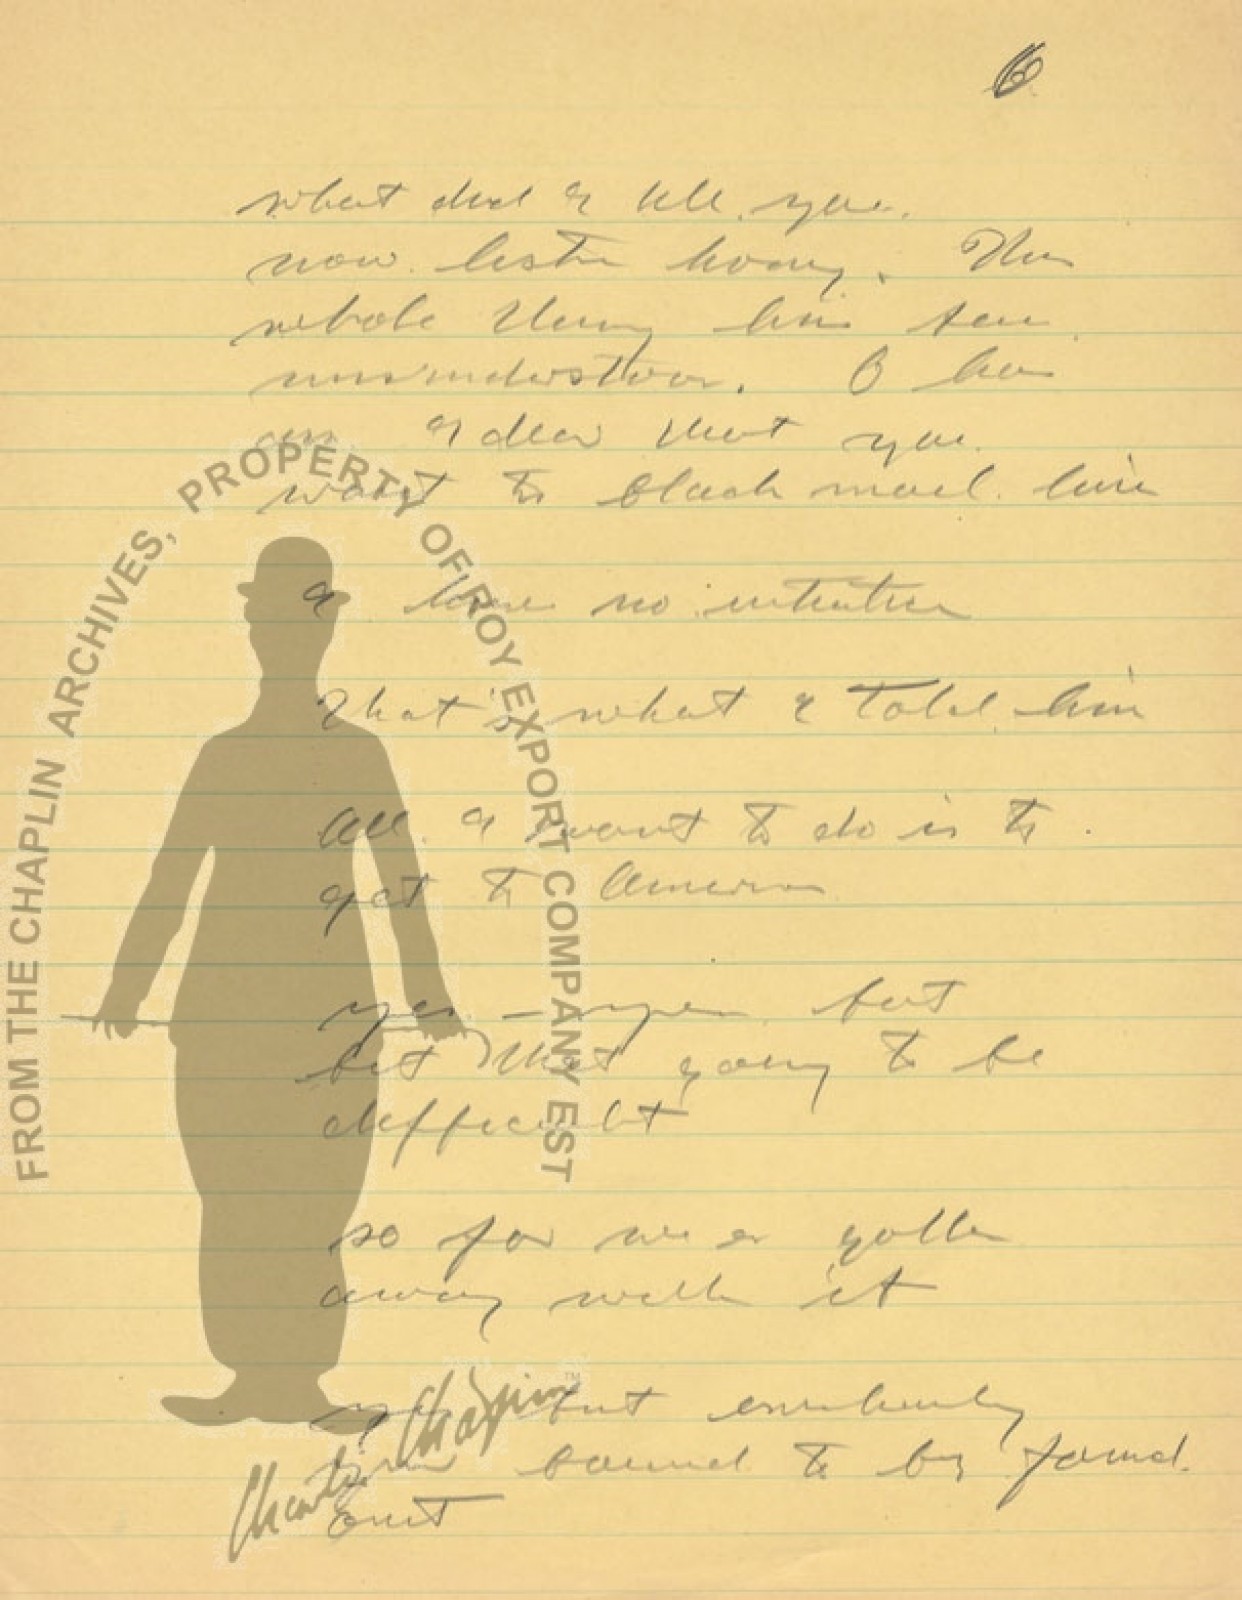 6
what did I tell you.
now listen honey. This
whole thing has been
misunderstood. O has
an idea that you
want to black mail him
I have no intention
That's what I told him
All I want to do is to
get to America
yes – yes but
but that going to be
difficult
so far we er gotten
away with it
yes but eventually
bound to by found
out
FROM THE CHAPLIN ARCHIVES, PROPERTY OF ROY EXPORT COMPANY EST
Charlie Chaplin™